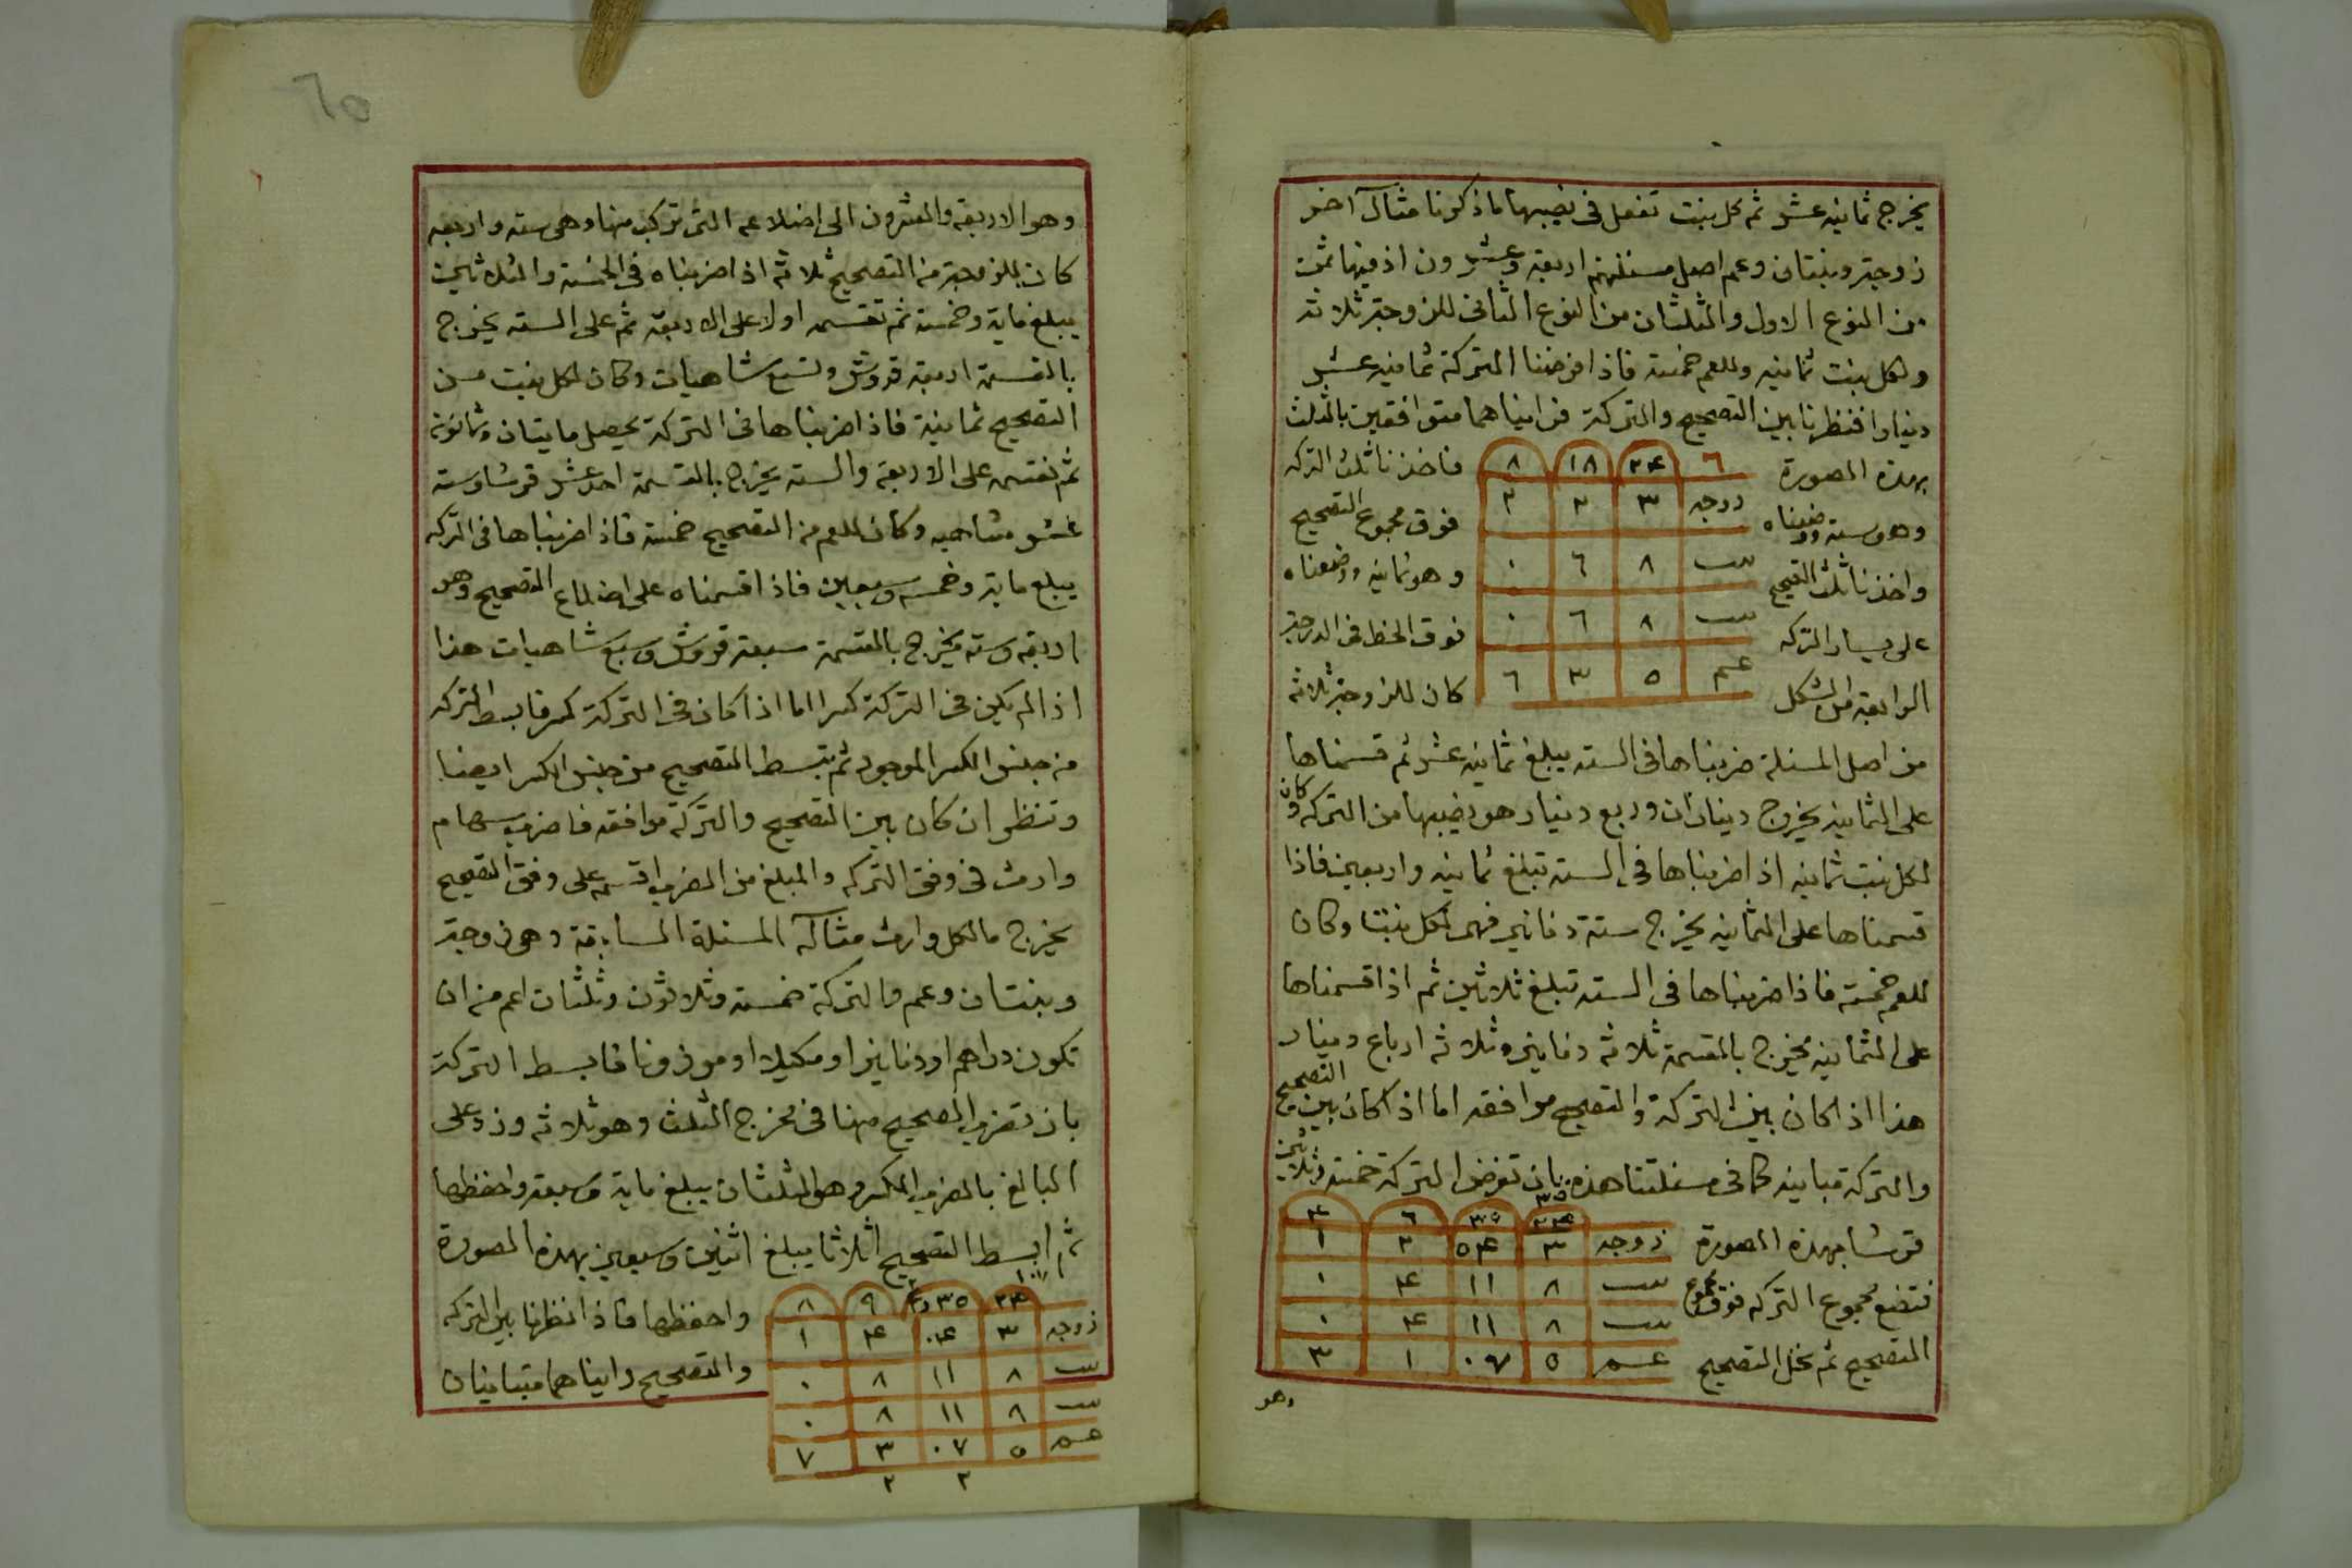 يخرج ثمانيه عشر ثم كل بنت تفعل فى نصيبها ماذكرنا مثال آخر
زوجة وبنتان وعم اصل مسئلتهم اربعة وعشرون اذ فيها ثمن
من النوع الاول والثلثان من النوع الثانى للزوجة ثلاثة
ولكل بنت ثمانيه وللعم خمسة فاذا فرضنا التركة ثمانيه عشر
دينارا فنظرنا بين التصحيح والتركة فراينا هما متوافقين بالثلث
بهذه الصورة
٦ ٢٤ ١٨ ٨
فاخذنا ثلث التركه
زوجه ٣ ٢ ٢
وهو سته ووضعناه
فوق مجموع التصحيح
بنت ٨ ٦ ٠
واخذنا ثلث التصحيح
وهو ثمانيه ووضعناه
بنت ٨ ٦ ٠
على يسار التركه
فوق الخط فى الدرجة
عم ٥ ٣ ٦
الرابعة من الشكل
كان للزوجة ثلاثه
من اصل المسئلة ضربناها فى السته يبلغ ثمانيه عشر ثم قسمناها
على الثمانيه يخرج ديناران وربع دينار هو نصيبها من التركه وكان
لكل بنت ثمانيه اذا ضربناها فى السته تبلغ ثمانيه واربعين فاذا
قسمناها على الثمانيه يخرج ستة دنانير فهى لكل بنت وكان
للعم خمسة فاذا ضربناها فى السته تبلغ ثلاثين ثم اذا قسمناها
على الثمانيه يخرج بالقسمة ثلاثة دنانير وثلاثه ارباع دينار
هذا اذا كان بين التركة والتصحيح موافقه اما اذا كان بين التصحيح
والتركة مباينه كما فى مسئلتنا هذه بان تفرض التركة خمسة وثلاثين
٣٥
٢٤ ٣٥ ٦ ٤
قرشا بهذه الصورة
زوجه ٣ ٥٤ ٢ ١
بنت ٨ ١١ ٤ ٠
فتضع مجموع التركه فوق مجموع
بنت ٨ ١١ ٤ ٠
التصحيح ثم تحل التصحيح
عم ٥ ٠٧ ١ ٣
وهو
٦٥
وهو الاربعة والعشرون الى اضلاعه التى تركب منها وهى سته واربعه
كان للزوجة من التصحيح ثلاثة اذا ضربناه فى الخمسة والثلاثين
يبلغ ماية وخمسة ثم تقسمه اولا على الاربعة ثم على السته يخرج
بالقسمة اربعة قروش وتسع شاهيات وكان لكل بنت من
التصحيح ثمانية فاذا ضربناها فى التركة يحصل مايتان وثمانون
ثم تقسمه على الاربعة والسته يخرج بالقسمة احد عشر قرشا وسته
عشر شاهيه وكان للعم من التصحيح خمسة فاذا ضربناها فى التركه
يبلغ ماية وخمسه وسبعين فاذا قسمناه على اضلاع التصحيح وهو
اربعة وسته يخرج بالقسمة سبعة قروش وسبع شاهيات هذا
اذا لم يكن فى التركة كسرا اما اذا كان فى التركة كسر فابسط التركه
من جنس الكسر الموجود ثم تبسط التصحيح من جنس الكسر ايضا
وتنظر ان كان بين التصحيح والتركة موافقه فاضرب سهام
وارث فى وفق التركه والمبلغ من الضرب اقسمه على وفق التصحيح
يخرج مالكل وارث مثاله المسئلة السابقة وهى زوجة
وبنتان وعم والتركة خمسة وثلاثون وثلثان اعم من ان
تكون دراهم او دنانيرا او مكيلا او موزونا فابسط التركة
بان تضرب الصحيح منها فى مخرج الثلث وهو ثلاثه وزد على
البالغ بالضرب الكسر وهو الثلثان يبلغ ماية وسبعة واحفظها
ثم ابسط التصحيح اثلاثا يبلغ اثنين وسبعين بهذه الصورة
١٠٧
٢٤ ٣٥ ٩ ٨
واحفظها فاذا نظرنا بين التركه
زوجه ٣ ٠٤ ٤ ١
والتصحيح رايناهما متباينان
بنت ٨ ١١ ٨ ٠
بنت ٨ ١١ ٨ ٠
عم ٥ ٠٧ ٣ ٧
٢ ٢